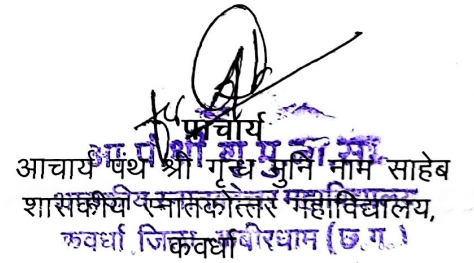 प्राचार्य
आचार्य पंथ श्री गृन्ध मुनि नाम साहेब
शासकीय स्नातकोत्तर महाविद्यालय,
कवर्धा
कवर्धा जिला कबीरधाम (छ.ग.)